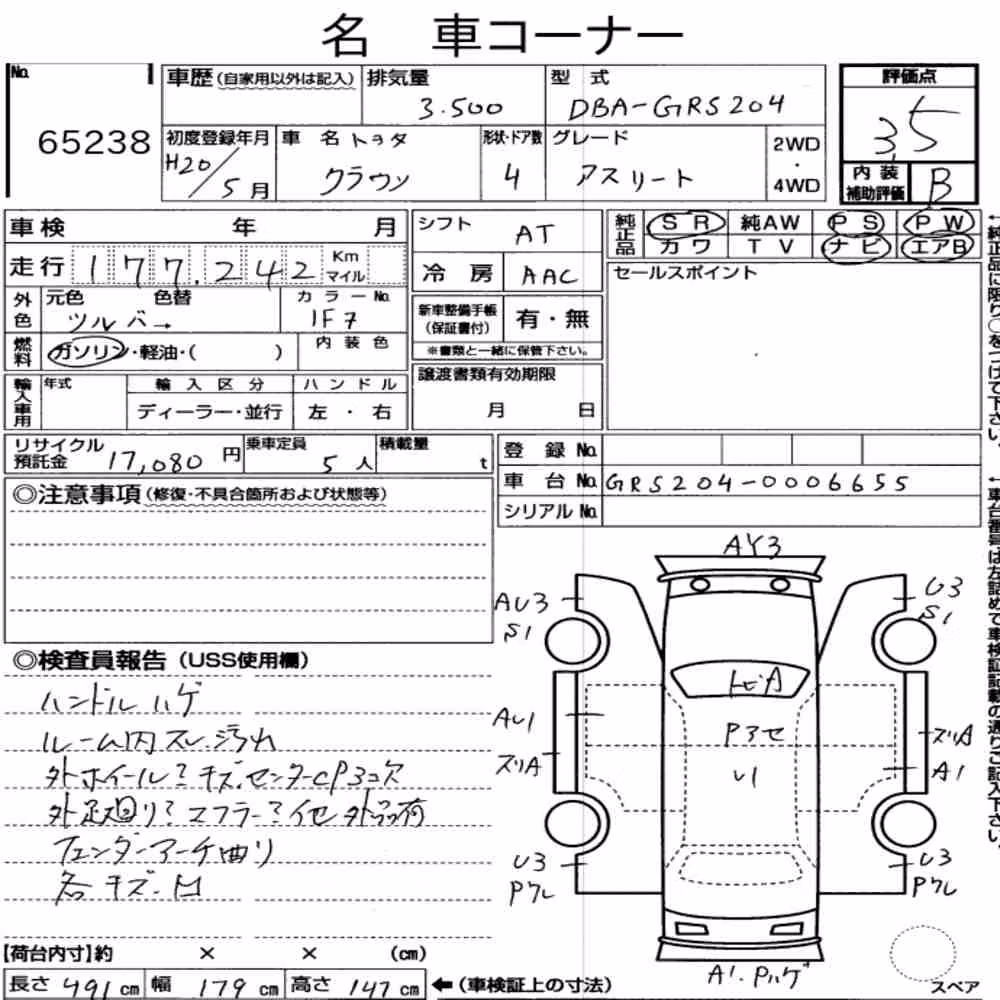 名 車コーナー
No.
65238
車歴 (自家用以外は記入)
排気量
3.500
型 式
DBA-GRS204
評価点
3.5
初度登録年月
H20/5月
車 名 トヨタ
クラウン
形状・ドア数
4
グレード
アスリート
2WD
・
4WD
内 装
補助評価
B
車検 年 月
走行 177.242 Km
マイル
外色
元色 色替
シルバー
カラーNo.
1F7
燃料
ガソリン・軽油・( )
内 装 色
輸入車用
年式
輸 入 区 分
ハ ン ド ル
ディーラー・並行
左 ・ 右
シフト AT
冷 房 AAC
新車整備手帳
(保証書付)
有・無
※書類と一緒に保管下さい。
譲渡書類有効期限
月 日
純正品
SR 純AW PS PW
カワ TV ナビ エアB
セールスポイント
←純正品に限り○をつけて下さい。
リサイクル
預託金 17,080 円
乗車定員
5 人
積載量
t
登 録 No.
車 台 No. GRS204-0006655
シリアル No.
←車台番号は左詰めで車検証記載の通りご記入下さい。
◎注意事項 (修復・不具合箇所および状態等)
◎検査員報告 (USS使用欄)
ハンドルハゲ
ルーム内スレ.汚れ
外ホイールミキズ.センターCP3コ欠
フェンダーアーチ曲り
各キズ.凹
AY3
AU3
S1
U3
S1
トビA
AU1
P3セ
U1
ズリA
ズリA
A1
U3
Pワレ
U3
Pワレ
A1.Pハゲ
スペア
【荷台内寸】約 × × (cm)
長さ 491 cm 幅 179 cm 高さ 147 cm ←(車検証上の寸法)